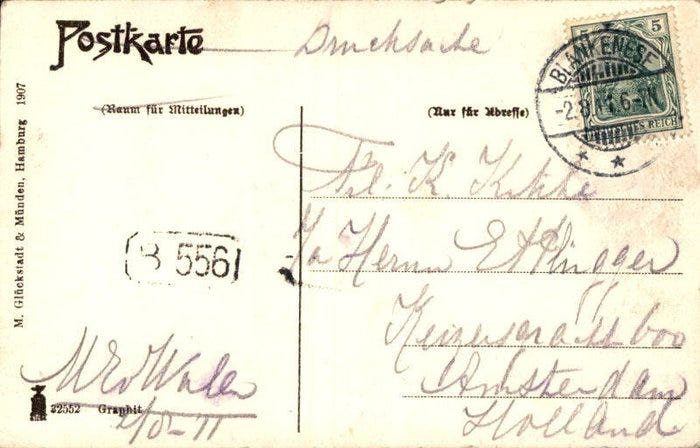 Postkarte
Drucksache
(Raum für Mitteilungen)
(Nur für Adresse)
5 5
BLANKENESE
-2.8.11.6-7N
DEUTSCHES REICH
Frl. K.
Herrn
Amsterdam
Holland
B 556
M. Glückstadt & Münden, Hamburg 1907
32552 Graphit
2/8-11